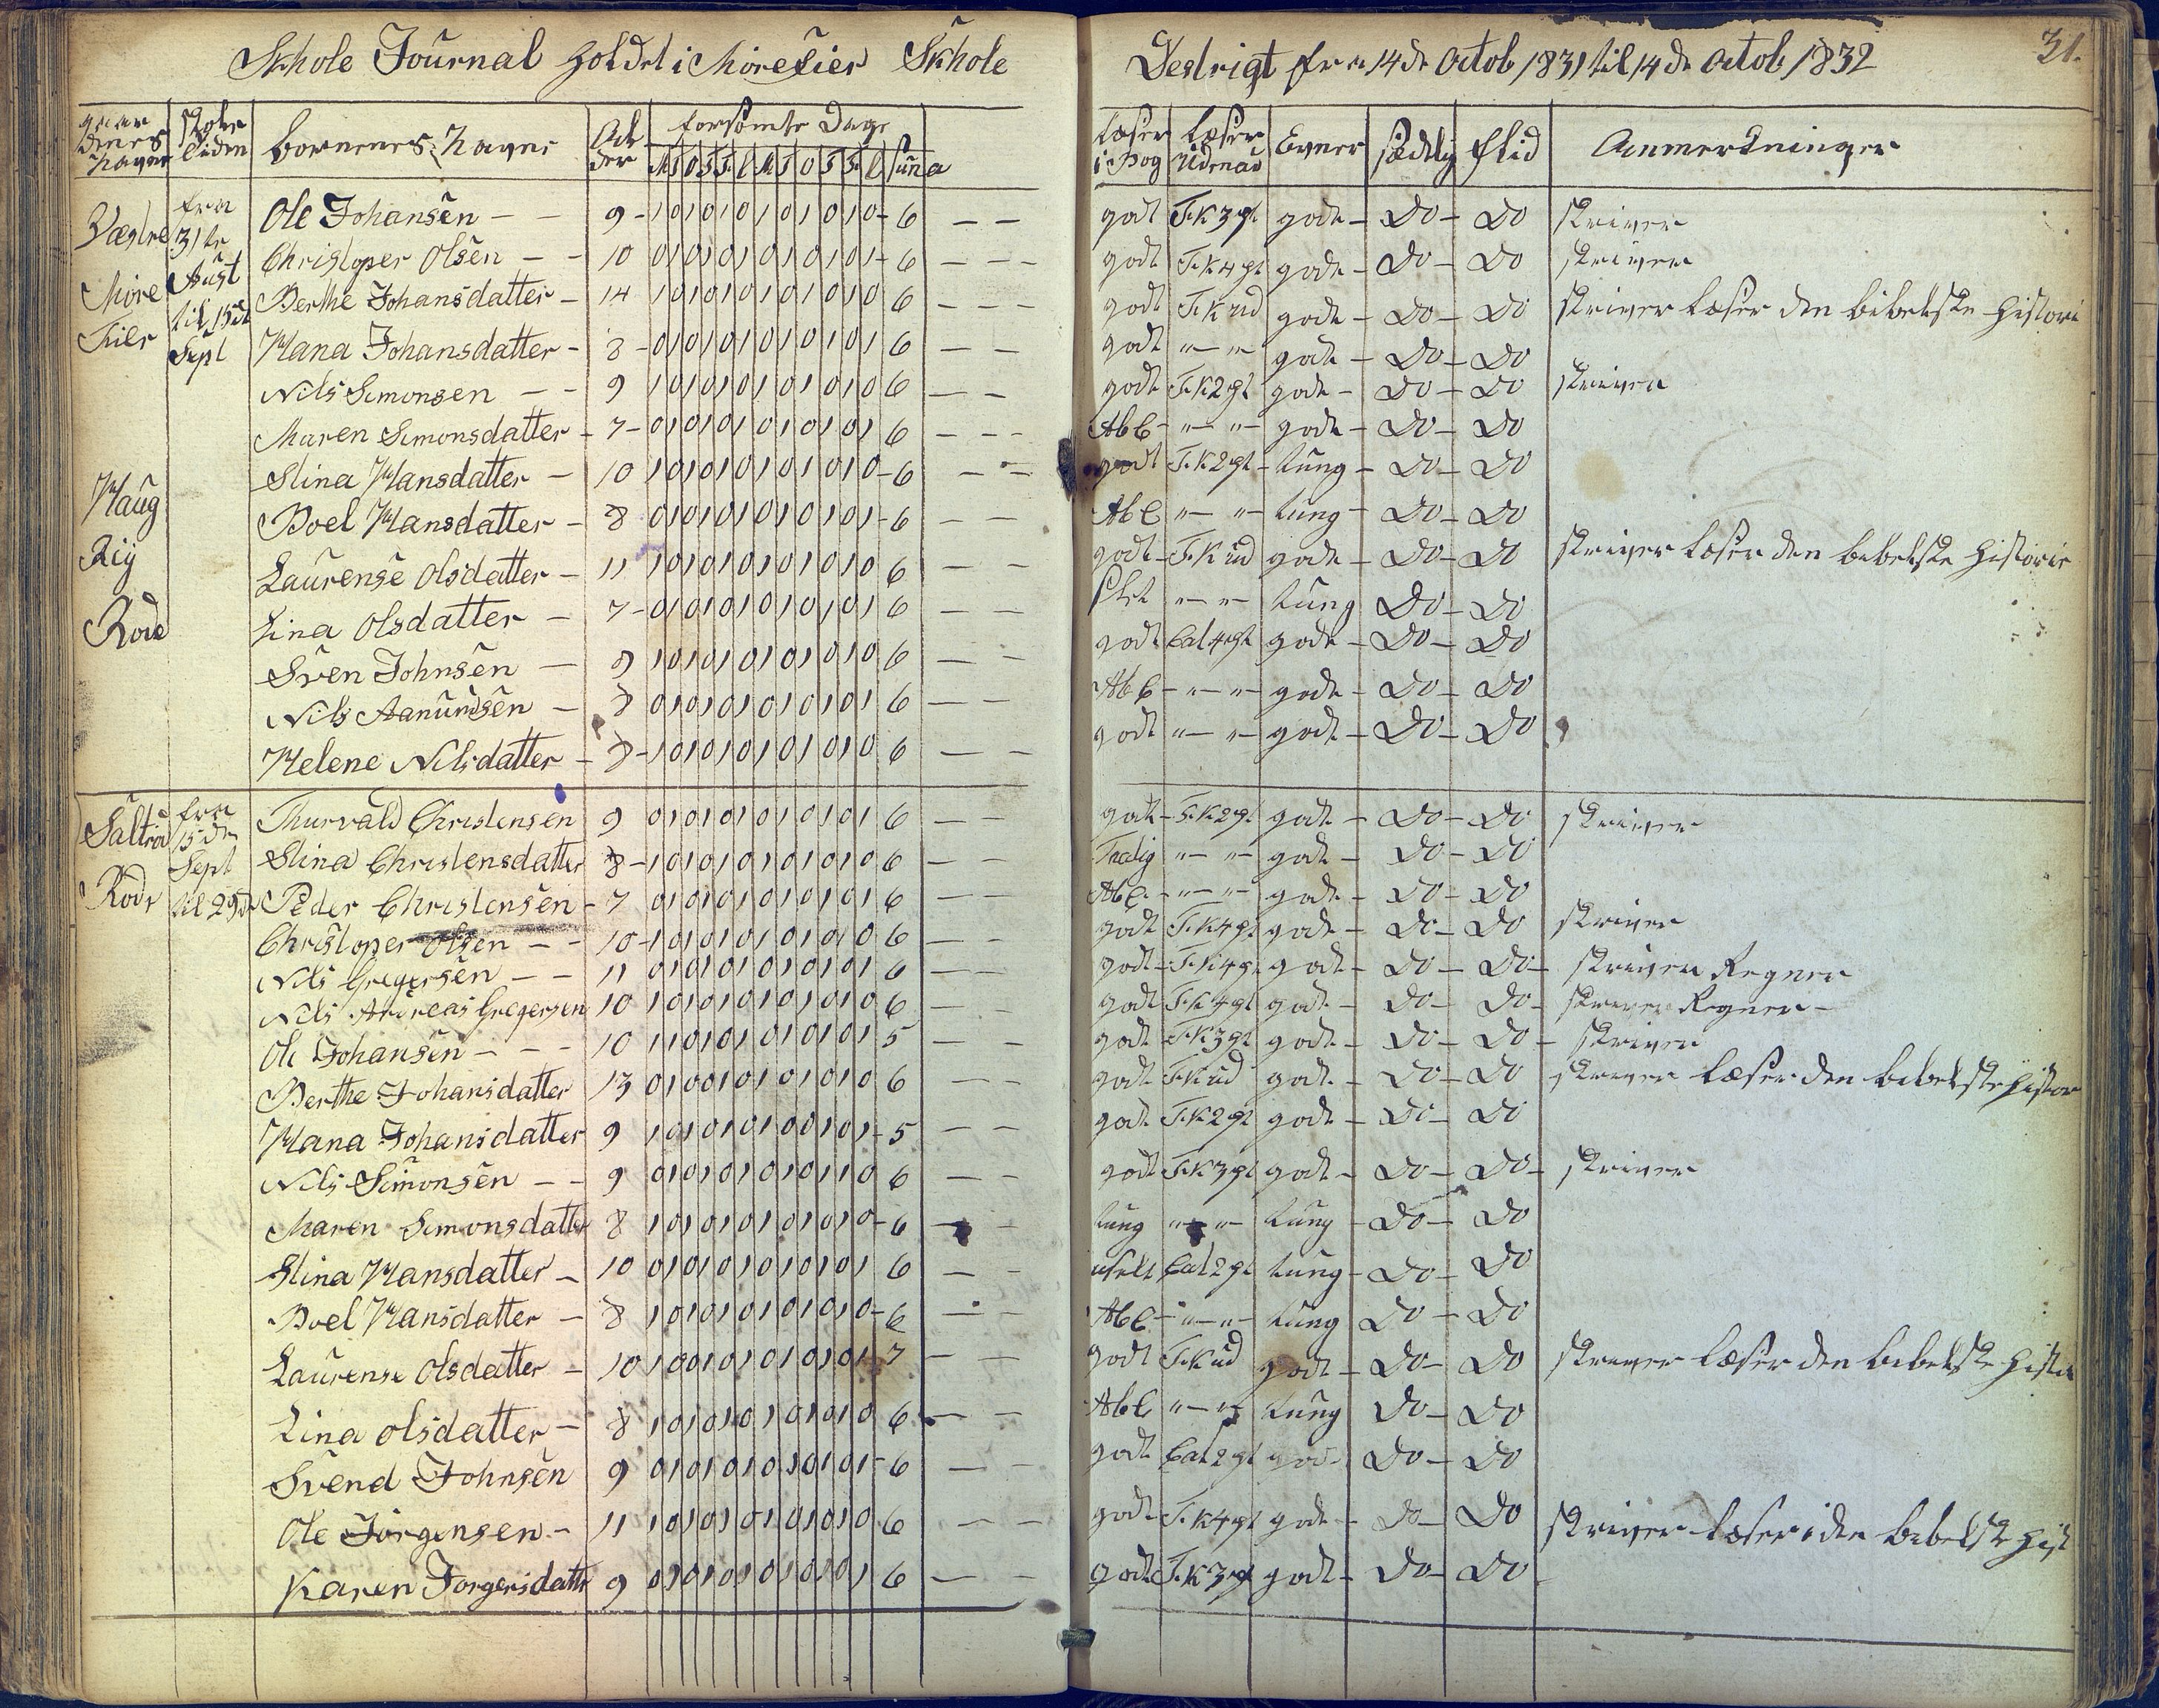 Skhole Journal holdet i Morefier Skhole
Destrigt fra 14de Octob 1831 til 14de Octob 1832
31.
Skole Tiden
børnenes Navne
Al der
forsømte Dage
M T O T F L M T O T F L Suma
Læser i Bog
Læser Udenad
Evner
sædelig
flid
Anmerkninger
Vestre More Fier
fra 31te Aust til 15de Sept
Ole Johansen - - 9 - 1 0 1 0 1 0 1 0 1 0 1 0 - 6 - - godt F.K 3 pt gode - Do - Do skriver
Christoper Olsen - - 10 0 1 0 1 0 1 0 1 0 1 0 1 - 6 - - - godt F.K 4 pt gode - Do - Do skriver
Berthe Johansdatter - 14 1 0 1 0 1 0 1 0 1 0 1 0 6 - - - godt F.K ud gode - Do - Do skriver Læser den bibelske Histori
Hana Johansdatter - 8 - 0 1 0 1 0 1 0 1 0 1 0 1 6 - - godt " - " - gode - Do - Do
Nils Simonsen - - 9 1 0 1 0 1 0 1 0 1 0 1 0 6 - - godt F.K 2 pt gode - Do - Do skriver
Maren Simonsdatter - 7 - 0 1 0 1 0 1 0 1 0 1 0 1 6 - - - Abc - " - " - gode - Do - Do
Haug
Stina Hansdatter - 10 1 0 1 0 1 0 1 0 1 0 1 0 - 6 - - - godt F.K. 2 pt - tung - Do - Do
Boel Hansdatter - 8 0 1 0 1 0 1 0 1 0 1 0 1 - 6 - - Abc " - " - tung - Do - Do
Rij
Laurense Olsdatter - 11 1 0 1 0 1 0 1 0 1 0 1 0 6 - - godt - F.K ud gode - Do - Do skriver Læser den bibelske Historie
Rød
Lina Olsdatter - 7 - 0 1 0 1 0 1 0 1 0 1 0 1 6 - - slet " - " - tung Do - Do
Sven Johnsen - 9 1 0 1 0 1 0 1 0 1 0 1 0 6 - - godt Cat 4 pt gode - Do - Do
Nils Aamundsen - 8 0 1 0 1 0 1 0 1 0 1 0 1 6 - - Abc - " - " - gode - Do - Do
Helene Nilsdatter - 8 - 1 0 1 0 1 0 1 0 1 0 1 0 6 - - godt " - " - gode - Do - Do
Saltrød
fra 15de Sept til 29de
Thurvald Christensen 9 0 1 0 1 0 1 0 1 0 1 0 1 6 - - godt - F.K. 2 pt gode - Do - Do skriver
Stina Christensdatter 8 - 1 0 1 0 1 0 1 0 1 0 1 0 6 - - " - " - gode - Do - Do
Peder Christensen - 7 0 1 0 1 0 1 0 1 0 1 0 1 6 - - Abc. - " - " - gode - Do - Do
Christoper Olsen - - 10 - 1 0 1 0 1 0 1 0 1 0 1 0 6 - - godt F.K 4 pt gode - Do - Do skriver
Nils Gregersen - - 11 0 1 0 1 0 1 0 1 0 1 0 1 6 - - godt - F.K 4 pt gode - Do - Do - skriver Regner
Nils Andreas Gregersen 10 1 0 1 0 1 0 1 0 1 0 1 0 6 - - godt F.K 4 pt gode - Do - Do - skriver Regner -
Ole Johansen - - - 10 1 1 0 1 0 1 0 1 0 1 0 1 5 - - godt F.K 3 pt gode - Do - Do - skriver
Berthe Johansdatter 13 0 1 0 0 1 0 1 0 1 0 1 0 6 - - godt F.K ud gode - Do - Do skriver Læser den bibelske Histor
Hana Johansdatter 9 - 5 - - godt F.K 2 pt gode - Do - Do
Nils Simonsen - - 9 0 1 0 1 0 1 0 1 0 1 1 0 6 - - godt F.K 3 pt gode - Do - Do - skriver
Maren Simonsdatter 8 1 0 1 0 1 0 1 0 1 0 1 0 - 6 - - tung " - " - tung - Do - Do
Stina Hansdatter - 10 0 1 0 1 0 1 0 1 0 1 0 1 6 - - Cat 2 pt tung - Do - Do
Boel Hansdatter - 8 1 0 1 0 1 0 1 0 1 0 1 0 - 6 - - Abc - " - " - tung Do - Do
Laurense Olsdatter - 10 7 - - godt F.K ud gode - Do - Do skriver Læser den bibelske Histo
Lina Olsdatter - 8 1 0 1 0 1 0 1 0 1 0 1 0 6 - - Abc " - " tung Do - Do
Svend Johnsen 9 0 1 0 1 0 1 0 1 0 1 0 1 - 6 - - godt Cat 2 pt gode Do - Do
Ole Jörgensen - 11 1 0 1 0 1 0 1 0 1 0 1 0 6 - - godt F.K 4 pt gode - Do - Do skriver Læser i den bibelske Hist
Karen Jorgensdatte 9 0 1 0 1 0 1 0 1 0 1 0 1 6 - - godt F.K 3 pt gode - Do - Do